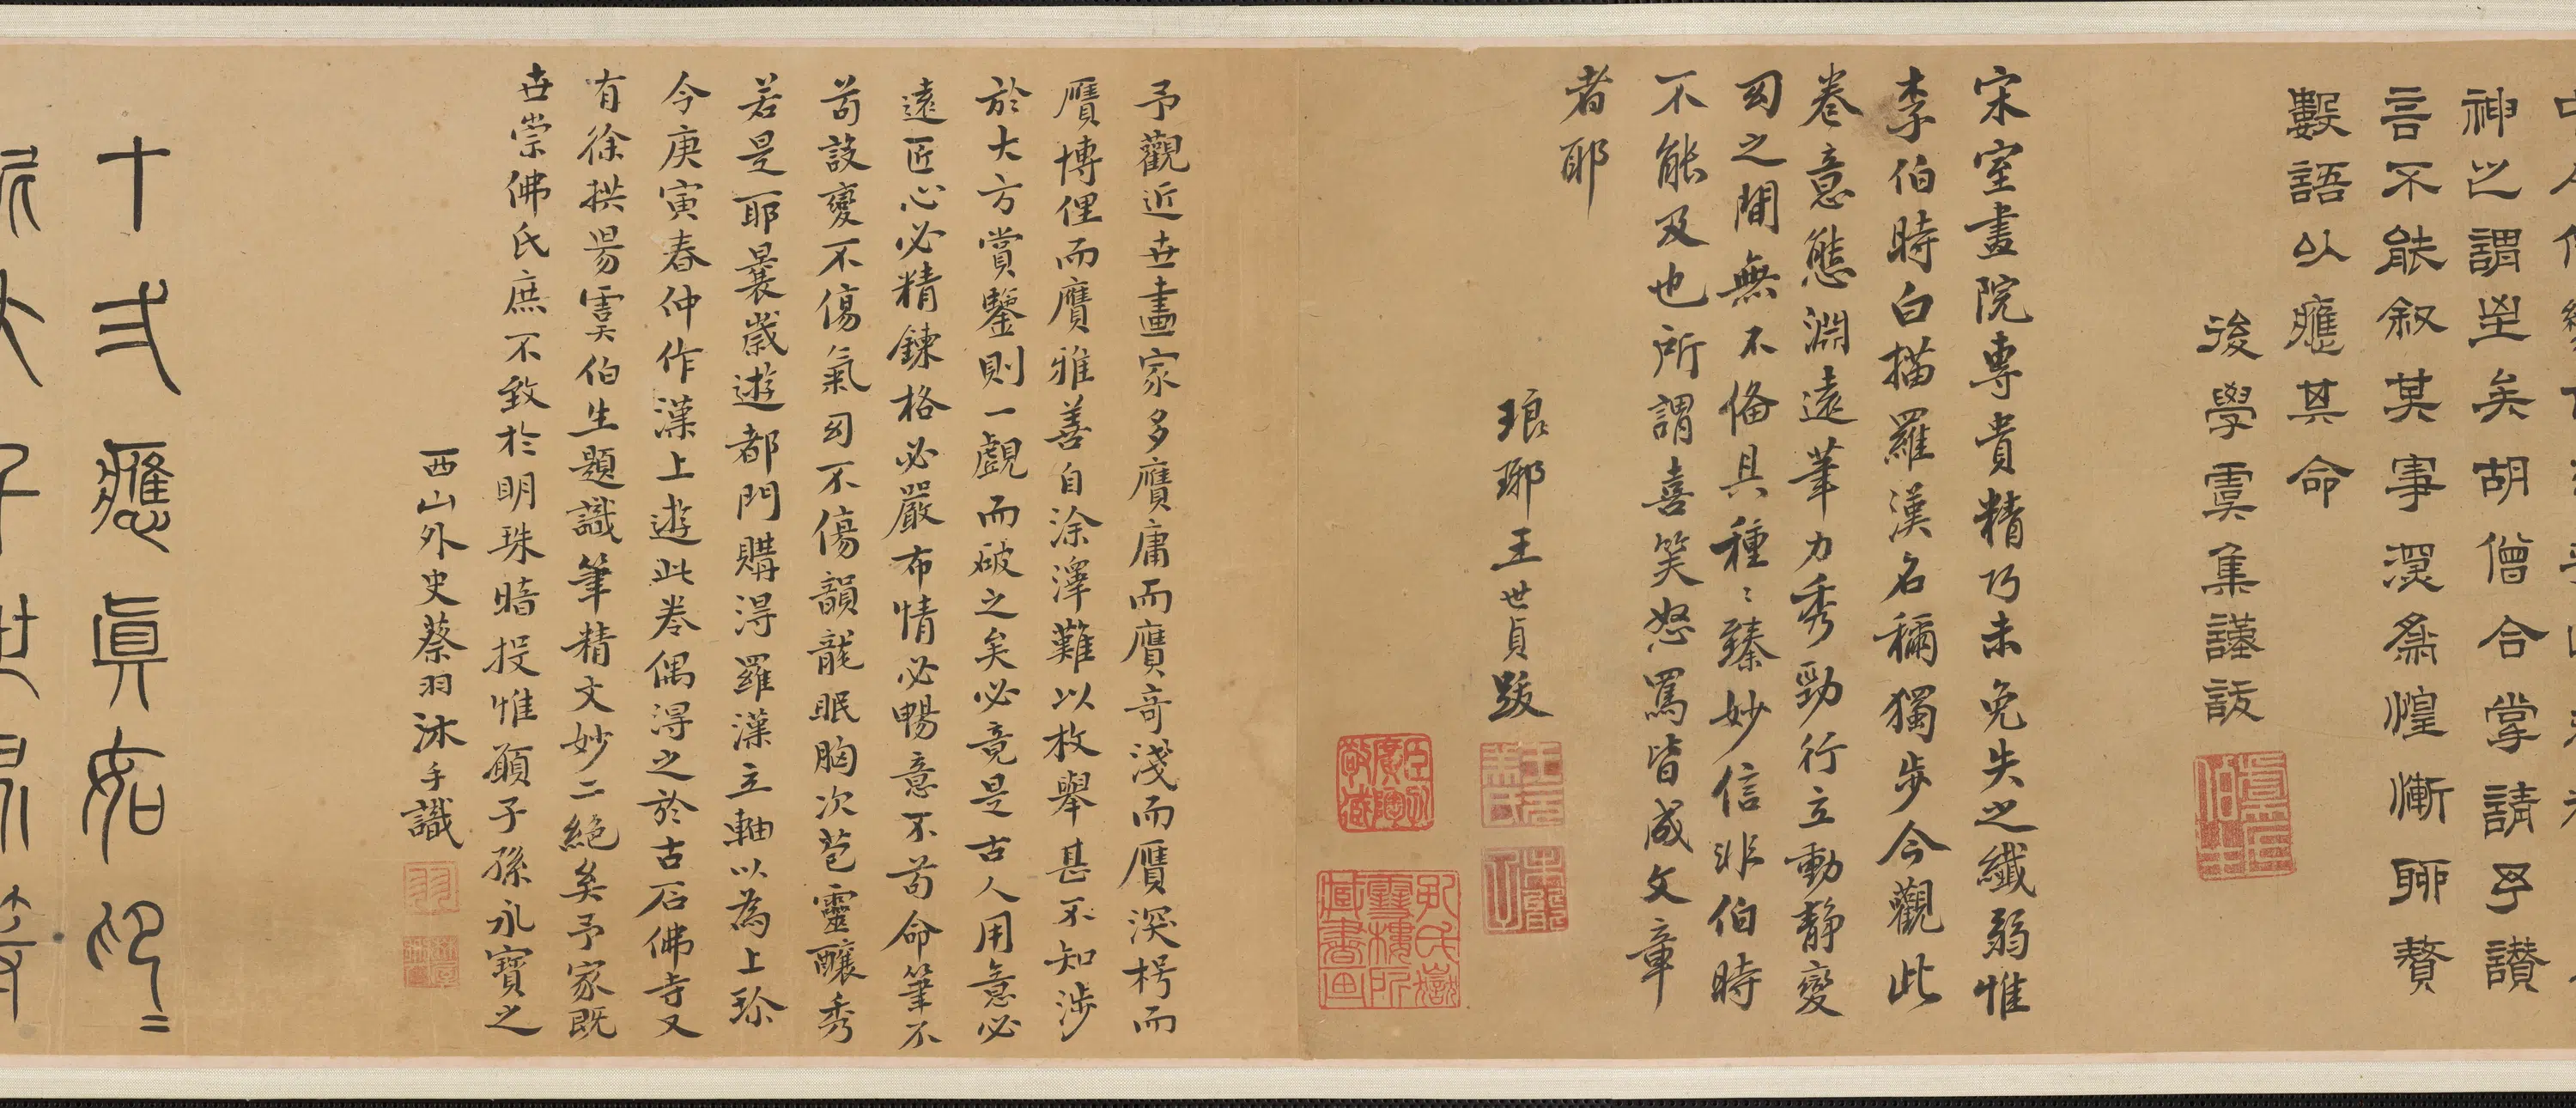 神之謂歟矣胡僧合掌請予讃
言不能叙其事漯粲惶慚聊贅
數語以應其命
後學虞集謹跋
宋室畫院專貴精巧未免失之纖弱惟
李伯時白描羅漢名稱獨步今觀此
卷意態淵遠筆力秀勁行立動靜變
幻之間無不備具種〻臻妙信非伯時
不能及也所謂喜笑怒罵皆成文章
者耶
琅琊王世貞跋
予觀近世畫家多贗庸而贗奇淺而贗深枵而
贗博俚而贗雅善自涂澤難以枚舉甚不知涉
於大方賞鑒則一覷而破之矣必竟是古人用意必
遠匠心必精鍊格必嚴布情必暢意不苟命筆不
苟設變不傷氣幻不傷韻龍眠胸次苞靈釀秀
若是耶曩歲遊都門購得羅漢立軸以為上珍
今庚寅春仲作漢上遊此卷偶得之於古石佛寺又
有徐拱易虞伯生題識筆精文妙二絕矣予家既
世崇佛氏庶不致於明珠暗投惟願子孫永寶之
西山外史蔡羽沐手識
十弍應真如